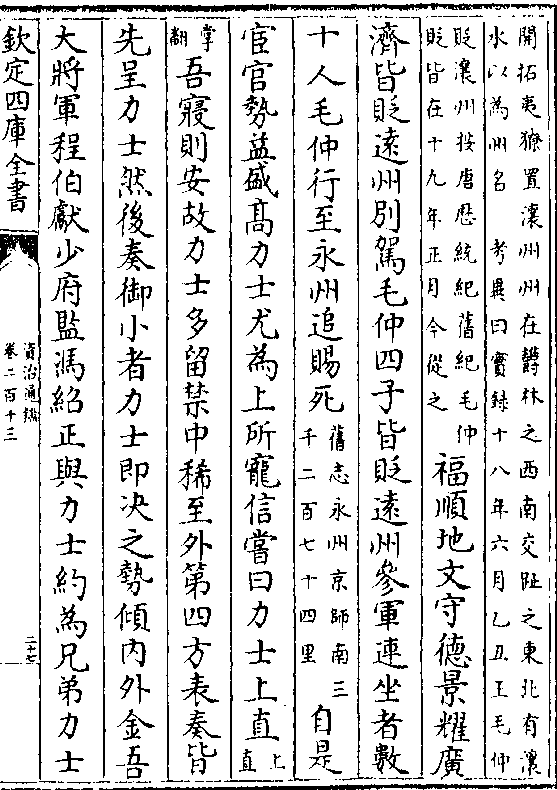 開拓夷獠置瀼州州在鬱林之西南交阯之東北有瀼
水以為州名　考異曰實録十八年六月乙丑王毛仲
貶瀼州按唐歴統紀舊紀毛仲
貶皆在十九年正月今從之
福順地文守德景耀廣
濟皆貶遠州别駕毛仲四子皆貶遠州參軍連坐者數
十人毛仲行至永州追賜死
舊志永州京師南三
千二百七十四里
自是
宦官勢益盛髙力士尤為上所寵信嘗曰力士上直
上
直
掌
翻
吾寢則安故力士多留禁中稀至外第四方表奏皆
先呈力士然後奏御小者力士即决之勢傾内外金吾
大將軍程伯獻少府監馮紹正與力士約為兄弟力士
欽定四庫全書
資治通鑑
卷二百十三
二十七